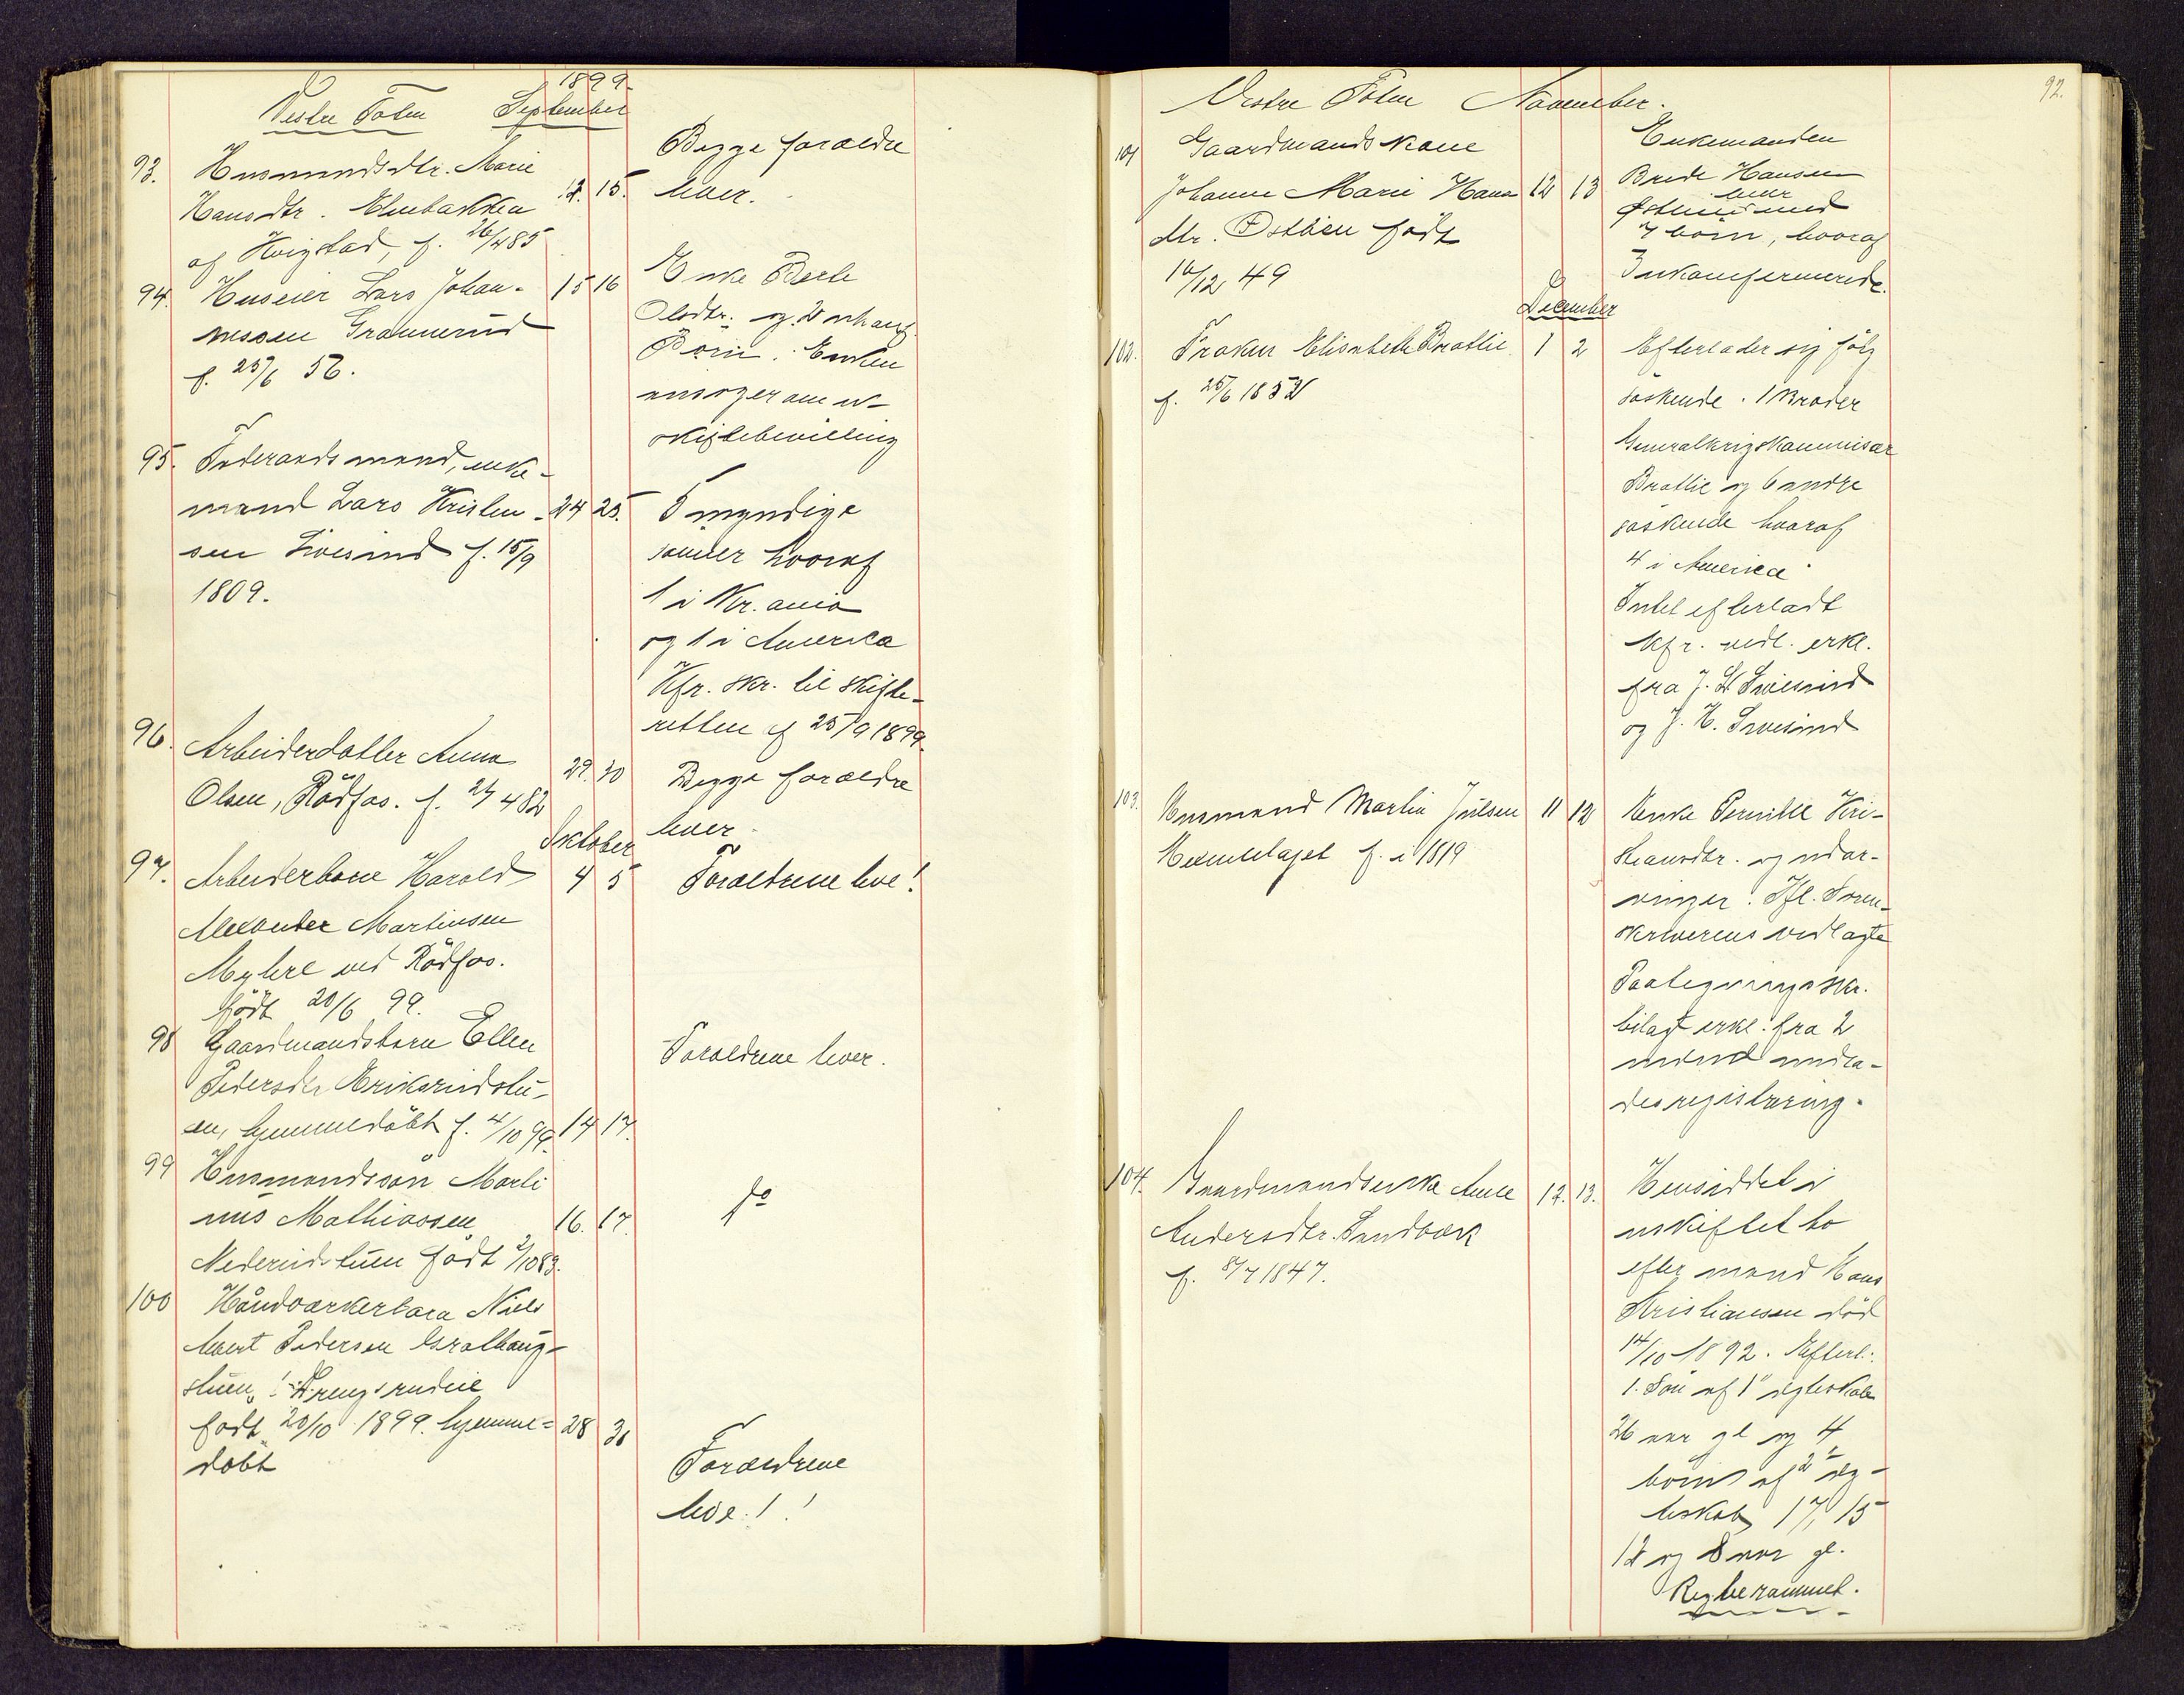 1899.
Vestre Toten September
93. Husmandsdtr. Marie
Hansdtr. Elnebakken 12. 15.
af Hvigstad, f. 26/4 85
Begge forældre
lever.
94. Huseier Lars Johan- 15 16
nessen Grannerud
f. 25/6 56.
Enke Berte
Olsdtr. og
Børn. Enken
ansøger om u-
skiftebevilling
95. Föderaadsmand, enke-
mand Lars Kristen- 24 25.
sen Sivesind f. 15/9
1809.
5 myndige
sønner hvoraf
1 i Kr.ania
og 1 i Amerika
Kfr. skr. til skifte-
retten af 25/9 1899.
96. Arbeiderdatter Anna
Olsen, Rödfos. f. 24/4 82 29. 30
Begge forældre
lever.
Oktober
97. Arbeiderbarn Harald 4 5
Alexander Martinsen
Myhre ved Rödfos.
födt 20/6 99.
Forældrene leve!
98 Gaardmandsbarn Ellen
Pedersdtr Eriksrudstu-
en, hjemmedöbt f. 4/10 99. 14 17.
Forældrene lever.
99 Husmandssön Marti
nus Mathiassen 16. 17.
Nederudstuen födt 2/10 83.
do
100 Håndværkerbarn Niels
Pedersen
stuen,
födt 20/10 1899. hjemme= 28 30
döbt
Forældrene
leve!!
92.
Vestre Toten November.
101 Gaardmandskone
Johanne Marie Hans 12 13
dtr. Østbien födt
16/12 49
Enkemanden
Brede Hansen
lever
Østbien med
7 börn, hvoraf
3 ukonfermerede.
December
102. Frøken Elisabeth Bratlie 1 2
f. 25/6 1832
Efterlader sig følg
søskende. 1 Broder
Generalkrigskommisær
Bratlie og 6 andre
søskende hvoraf
4 i America
Intet efterladt
kfr. vedl. erkl.
fra J. L Sivesind
og J. H. Sivesind
103. Husmand Martin Julsen 11 12
f. i 1819
Enke Pernille Kri-
stiansdtr. og udar-
vinger. Ifl. Soren-
skriverens vedlagte
Paategningsskr.
bilagt erkl. fra 2
mænd undla-
des registrering.
104. Gaardmandsenke Anne 12. 13.
Andersdtr. Sandbæk
f. 8/7 1847.
Hensiddet i
uskiftet bo
efter mand Hans
Kristiansen död
14/10 1892. Efterl.
1. Sön af 1ste ægteskab
26 aar gl og 4
börn af 2det æg-
teskab, 17, 15
12 og 8 aar gl.
Reg berammet.